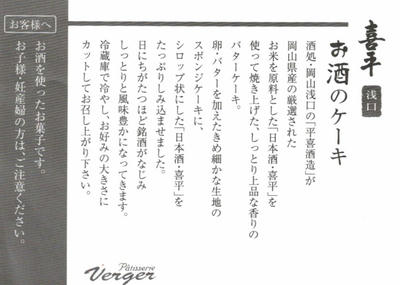 喜平
浅口
お酒のケーキ
酒処・岡山浅口の「平喜酒造」が
岡山県産の厳選された
お米を原料とした「日本酒・喜平」を
使って焼き上げた、しっとり上品な香りの
バターケーキ。
卵・バターを加えたきめ細かな生地の
スポンジケーキに、
シロップ状にした「日本酒・喜平」を
たっぷりしみ込ませました。
日にちがたつほど銘酒がなじみ
しっとりと風味豊かになってきます。
冷蔵庫で冷やし、お好みの大きさに
カットしてお召し上がり下さい。
Pâtisserie
Verger
お客様へ
お酒を使ったお菓子です。
お子様・妊産婦の方は、ご注意ください。